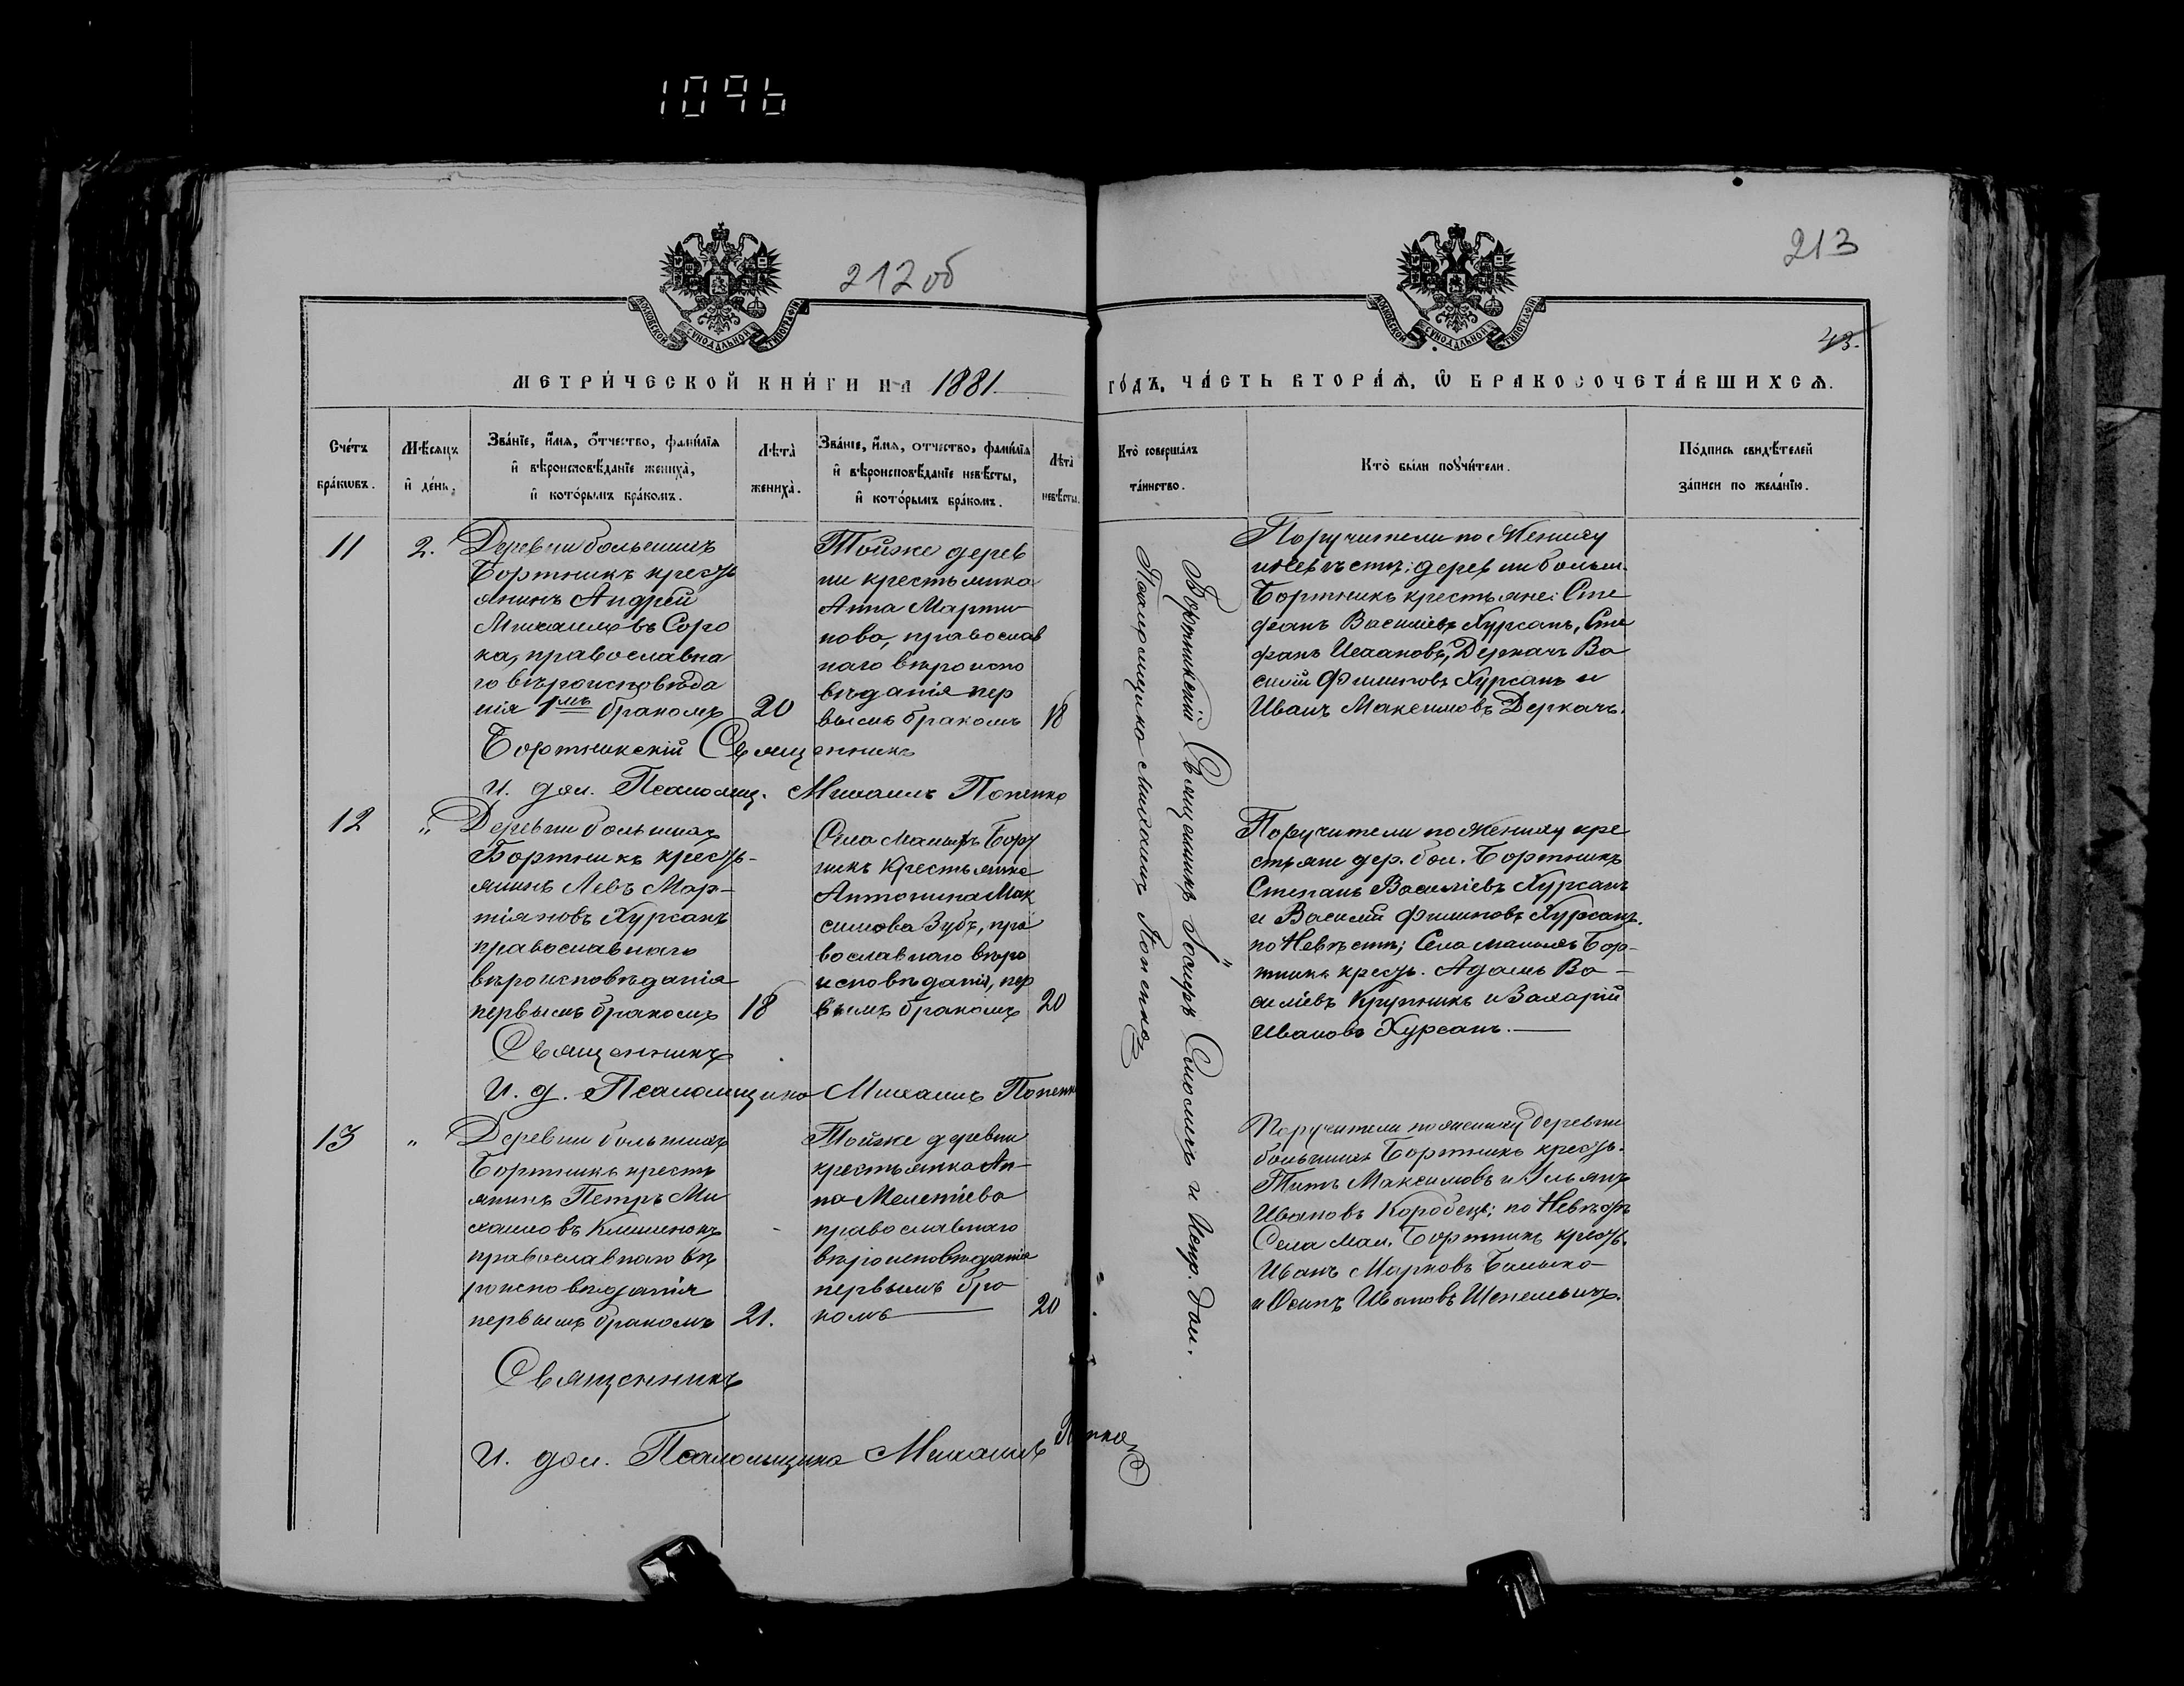 1096
212 об
213
43.
МОСКОВСКОЙ СѴНОДАЛЬНОЙ ТИПОГРАФІИ
МОСКОВСКОЙ СѴНОДАЛЬНОЙ ТИПОГРАФІИ
МЕТРИ́ЧЕСКОЙ КНИ́ГИ НА 1881.
ГО́ДЪ, ЧА́СТЬ ВТОРА́Ѧ, Ѽ БРАКОСОЧЕТА́ВШИХСѦ.
Сче́тъ
бра́ковъ.
Мѣ́сяцъ
и҆ де́нь.
Зва́нїе, и҆́мя, ѻ҆́тчество, фами́лїя
и҆ вѣроисповѣ́данїе жениха̀,
и҆ кото́рымъ бра́комъ.
Лѣ́та̀
жениха̀.
Зва́нїе, и҆́мя, отчество, фами́лїя
и҆ вѣроисповѣ́данїе невѣ́сты,
и҆ кото́рымъ бра́комъ.
Лѣ́та̀
невѣ́сты.
Кто̀ соверша́лъ
та́инство.
Кто̀ бы́ли порꙋчи́тели.
По́дпись свидѣ́телей
за́писи по жела́нїю.
11
2.
Деревни большихъ
Бортникъ кресть
янинъ Андрей
Михаиловъ Соро
ка, православна
го вѣроисповѣда
нія 1мъ бракомъ
20
Тойже дерев
ни крестьянка
Анна Марти
нова, православ
наго вѣроиспо
вѣданія пер
вымъ бракомъ
18
Поручители по Жениху
и Невѣстѣ: деревни больш.
Бортникъ крестьяне: Сте
фанъ Василіевъ Хурсанъ, Сте
фанъ Исааковъ, Деркачъ Ва
силій Филиповъ Хурсанъ и
Иванъ Максимовъ Деркачъ.
Бортникскій Священникъ
И. дол. Псаломщ. Михаилъ Попенко
12
"
Деревни большихъ
Бортникъ кресть-
янинъ Левъ Мар-
тіяновъ Хурсанъ
православнаго
вѣроисповѣданія
первымъ бракомъ
18
Села Малыхъ Борт
никъ Крестьянка
Антонина Мак
симова Зубъ, пра
вославнаго вѣро
исповѣданія, пер
вымъ бракомъ
20
Поручители по Жениху кре
стьяне дер. бол. Бортникъ
Степанъ Василіевъ Хурсанъ
и Василій Филиповъ Хурсанъ.
по Невѣстѣ; Села малыхъ Бор-
тникъ кресть. Адамъ Ва-
силіевъ Крупникъ и Захарій
Ивановъ Хурсанъ.
Священникъ
И. д. Псаломщика Михаилъ Попенко
13
"
Деревни большихъ
Бортникъ кресть
янинъ Петръ Ми
хаиловъ Климонокъ
православнаго вѣ
роисповѣданія
первымъ бракомъ
21.
Тойже деревни
крестьянка Ан-
на Мелетіева
православнаго
вѣроисповѣданія
первымъ бра
комъ
20
Поручители по жениху деревни
большихъ Бортникъ кресть.
Титъ Максимовъ и Ульянъ
Ивановъ Коробецъ; по Невѣстѣ
Села Мал. Бортникъ кресть.
Иванъ Марковъ
и Осипъ Ивановъ Шепелевичъ.
Священникъ
И. дол. Псаломщика Михаилъ Попенко
Бортникскій Священникъ Іосифъ и Испр. Дол.
Псаломщика Михаилъ Попенко